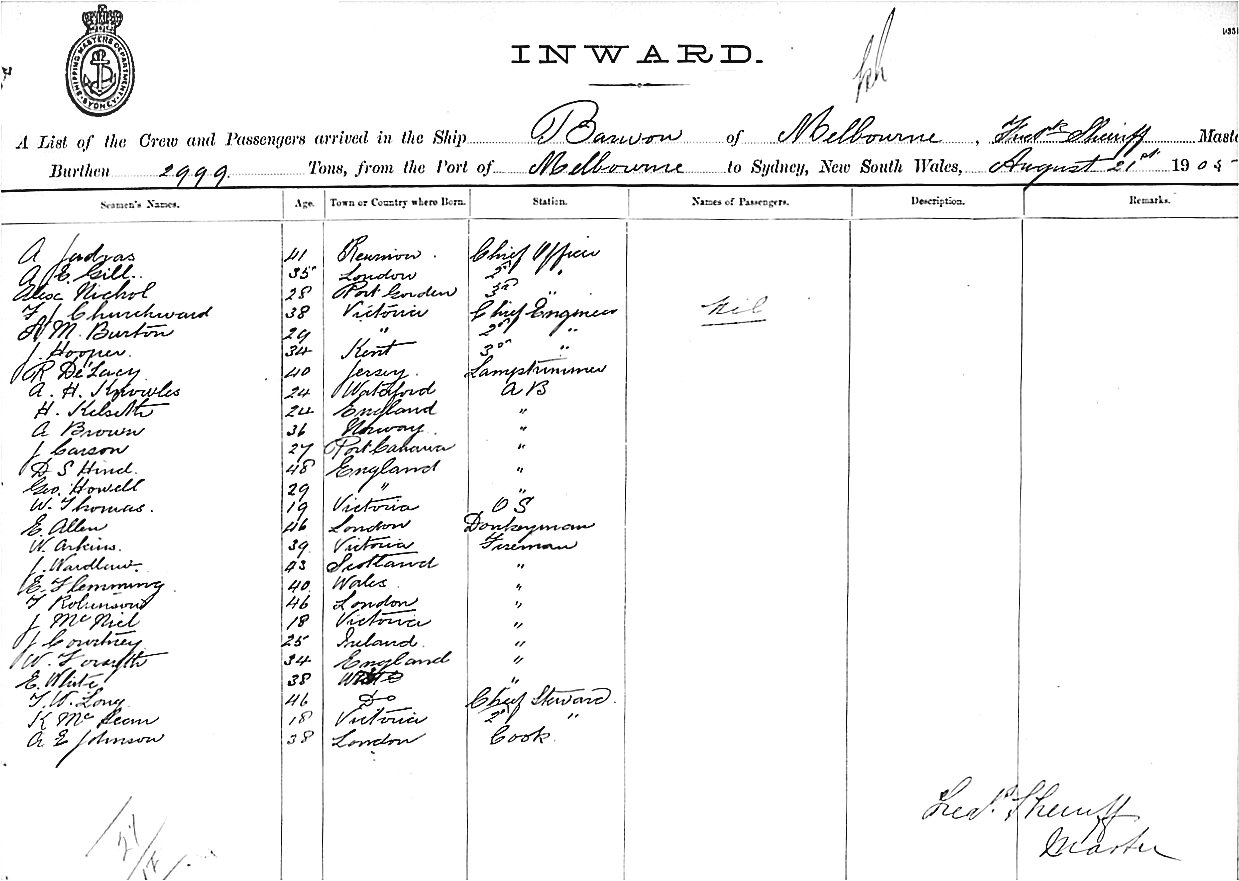 SHIPPING MASTERS DEPARTMENT
SYDNEY
INWARD.
A List of the Crew and Passengers arrived in the Ship Barwon of Melbourne, Fredk Sheriff Maste
Burthen 2999 Tons, from the Port of Melbourne to Sydney, New South Wales, August 21st 1905
Seamen's Names. Age. Town or Country where Born. Station. Names of Passengers. Description. Remarks.
A 41 Reunion. Chief Officer
A E. Gill. 35 London 2nd "
Alex Nichol 28 Port Gordon 3rd "
F J Churchward 38 Victoria Chief Engineer Nil
A M. Burton 29 " 2nd "
J. Hooper. 34 Kent 3rd "
R De Lacy 40 Jersey. Lamptrimmer
A. H. Knowles 24 Waterford A B
H. 24 England "
A Brown 36 Norway. "
J Carson 27 Port "
D S Hind. 48 England "
Geo. Howell 29 " "
W. Thomas. 19 Victoria O S
E. Allen 46 London Donkeyman
W. Arkins. 39 Victoria Fireman
J. Wardlaw. 43 Scotland "
E. Flemming. 40 Wales "
T Robinson 46 London "
J McNiel 18 Victoria "
J Courtney 25 Ireland. "
W. Forsyth 34 England "
E. White 38 "
T. W. Long 46 Do Chief Steward.
K McLean 18 Victoria 2nd "
A E Johnson 38 London Cook.
Fred. Sheriff
Master
27